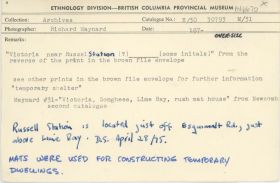 ETHNOLOGY DIVISION—BRITISH COLUMBIA PROVINCIAL MUSEUM
Collection: Archives Catalogue No.: E/50 30793 E/51
OVERSIZE
Photographer: Richard Maynard Date: 187-
Remarks:
"Victoria near Russel Station (?) (some initals)" from the
reverse of the print in the brown file envelope
see other prints in the brown file envelope for further information
"temporary shelter"
Maynard #31="Victoria, Songhees, Lime Bay, rush mat house" from Newcombe
second catalogue
Russell Station is located just off Esquimalt Rd., just
above Lime Bay. D.S. April 28/75.
MATS WERE USED FOR CONSTRUCTING TEMPORARY
DWELLINGS.